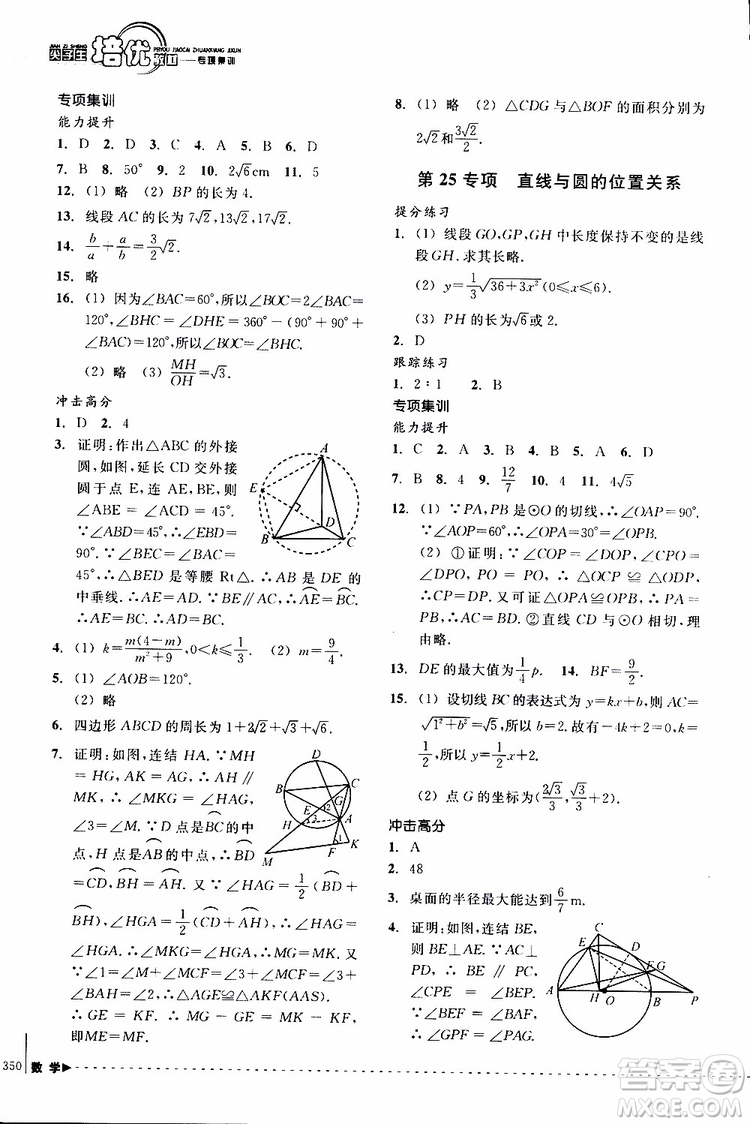 尖子生培优教材——专项集训
PEIYOU JIAOCAI ZHUANXIANG JIXUN
专项集训
能力提升
1. D  2. D  3. C  4. D  5. B  6. D
7. B  8. 50°  9. B  10. 2√6 cm  11. 5
12. (1) 略  (2) BP 的长为 4.
13. 线段 AC 的长为 7√2, 13√2, 17√2.
14. b/a + a/b = (3/2)√2.
15. 略
16. (1) 因为∠BAC=60°,所以∠BOC=2∠BAC=
120°,∠BHC = ∠DHE = 360° − (90° + 90° +
∠BAC)=120°.所以∠BOC=∠BHC.
(2) 略  (3) MH/OH=√3.
冲击高分
1. D  2. 4
3. 证明:作出△ABC 的外接
圆,如图,延长 CD 交外接
圆于点 E,连 AE,BE,则
∠ABE = ∠ACD = 45°.
∵∠ABD=45°,∴∠EBD=
90°. ∵ ∠BEC = ∠BAC =
45°,∴△BED 是等腰 Rt△.∴AB 是 ED 的
中垂线.∴AE=AD.∵BE∥AC,∴AE⌒=BC⌒.
∴AE=BC.∴AD=BC.
4. (1) k=m(4−m)/(m²+9),0<k≤1/3  (2) m=9/4
5. (1) ∠AOB=120°.
(2) 略
6. 四边形 ABCD 的周长为 1+2√2+√3+√6.
7. 证明:如图,连结 HA.∵MH
=HG, AK = AG, ∴ AH∥
MK, ∴ ∠MKG = ∠HAG,
∠3=∠M.∵D 点是BC⌒的中
点,H 点是AB⌒的中点,∴BD⌒
=CD⌒,BH⌒=AH⌒.又∵∠HAG=1/2(BD⌒+
BH⌒),∠HGA=1/2(CD⌒+AH⌒),∴∠HAG=
∠HGA.∴∠MKG=∠HGA.∴MG=MK.又
∵∠1=∠M+∠MCF=∠3+∠MCF=∠2+
∠BAH = ∠2, ∴ △AGE≌△AKF(AAS).
∴ GE = KF. ∴ MG − GE = MK − KF,
即ME=MF.
8. (1) 略  (2) △CDG 与△BOF 的面积分别为
2√2和3√2/2.
第 25 专项  直线与圆的位置关系
提分练习
1. (1) 线段 GO,GP,GH 中长度保持不变的是线
段 GH.求其长略.
(2) y=1/3√(36+3x²)(0≤x≤6)
(3) PH 的长为√6或 2.
2. D
跟踪练习
1. 2∶1  2. B
专项集训
能力提升
1. C  2. A  3. B  4. A  5. D  6. D
7. B  8. 4  9. 12/7  10. 4  11. 4√5
12. (1) ∵PA,PB 是⊙O 的切线,∴∠OAP=90°.
∵∠AOP=60°,∴∠OPA=30°=∠OPB.
(2) ①证明:∵∠COP=∠DOP,∠CPO=
∠DPO, PO = PO, ∴ △OCP ≌ △ODP,
∴CP=DP.又可证△OPA≌△OPB,∴PA=
PB,∴AC=BD. ②直线 CD 与⊙O 相切.理
由略.
13. DE 的最大值为1/4 p.  14. BF=9/2.
15. (1) 设切线 BC 的表达式为 y=kx+b,则 AC=
√(1²+b²)=√5,所以 b=2.故有−4k+2=0.k=
1/2,所以 y=1/2x+2.
(2) 点 G 的坐标为(2√3/3, √3/3)
冲击高分
1. A
2. 48
3. 桌面的半径最大能达到6/7 m.
4. 证明:如图,连结 BE,
则 BE⊥AE. ∵ OC⊥
PD, ∴ BE ∥ PC,
∠CPE = ∠BEP. ∵
∠BEF = ∠BAF, ∴
∠GPF = ∠PAG.
A
E
D
B
C
D
B
C
E
G
2
H
3
A
1
M
F
K
C
E
D
F
G
A
H
O
B
P
350
数学
答案圈
MXQE.COM